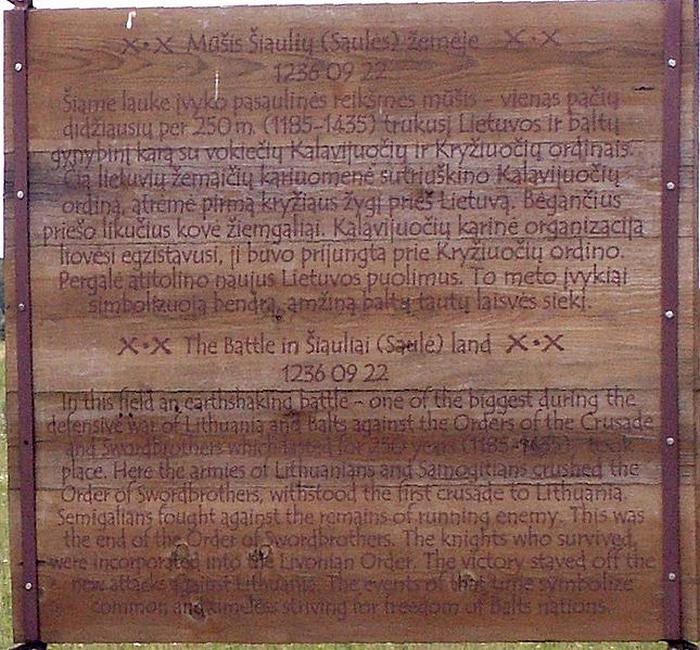 Mūšis Šiaulių (Saulės) žemėje
1236 09 22
Šiame lauke įvyko pasaulinės reikšmės mūšis – vienas pačių
didžiausių per 250 m. (1185–1435) trukusį Lietuvos ir baltų
gynybinį karą su vokiečių Kalavijuočių ir Kryžiuočių ordinais.
Čia lietuvių žemaičių kariuomenė sutriuškino Kalavijuočių
ordiną, atrėmė pirmą kryžiaus žygį prieš Lietuvą. Bėgančius
priešo likučius kovė žiemgaliai. Kalavijuočių karinė organizacija
liovėsi egzistavusi, ji buvo prijungta prie Kryžiuočių ordino.
Pergalė atitolino naujus Lietuvos puolimus. To meto įvykiai
simbolizuoja bendrą, amžiną baltų tautų laisvės siekį.
The Battle in Šiauliai (Saulė) land
1236 09 22
In this field an earthshaking battle – one of the biggest during the
defensive war of Lithuania and Balts against the Orders of the Crusade
and Swordbrothers which lasted for 250 years (1185–1435) took
place. Here the armies of Lithuanians and Samogitians crushed the
Order of Swordbrothers, withstood the first crusade to Lithuania.
Semigalians fought against the remains of running enemy. This was
the end of the Order of Swordbrothers. The knights who survived,
were incorporated into the Livonian Order. The victory staved off the
new attacks against Lithuania. The events of that time symbolize
common and timeless striving for freedom of Balts nations.